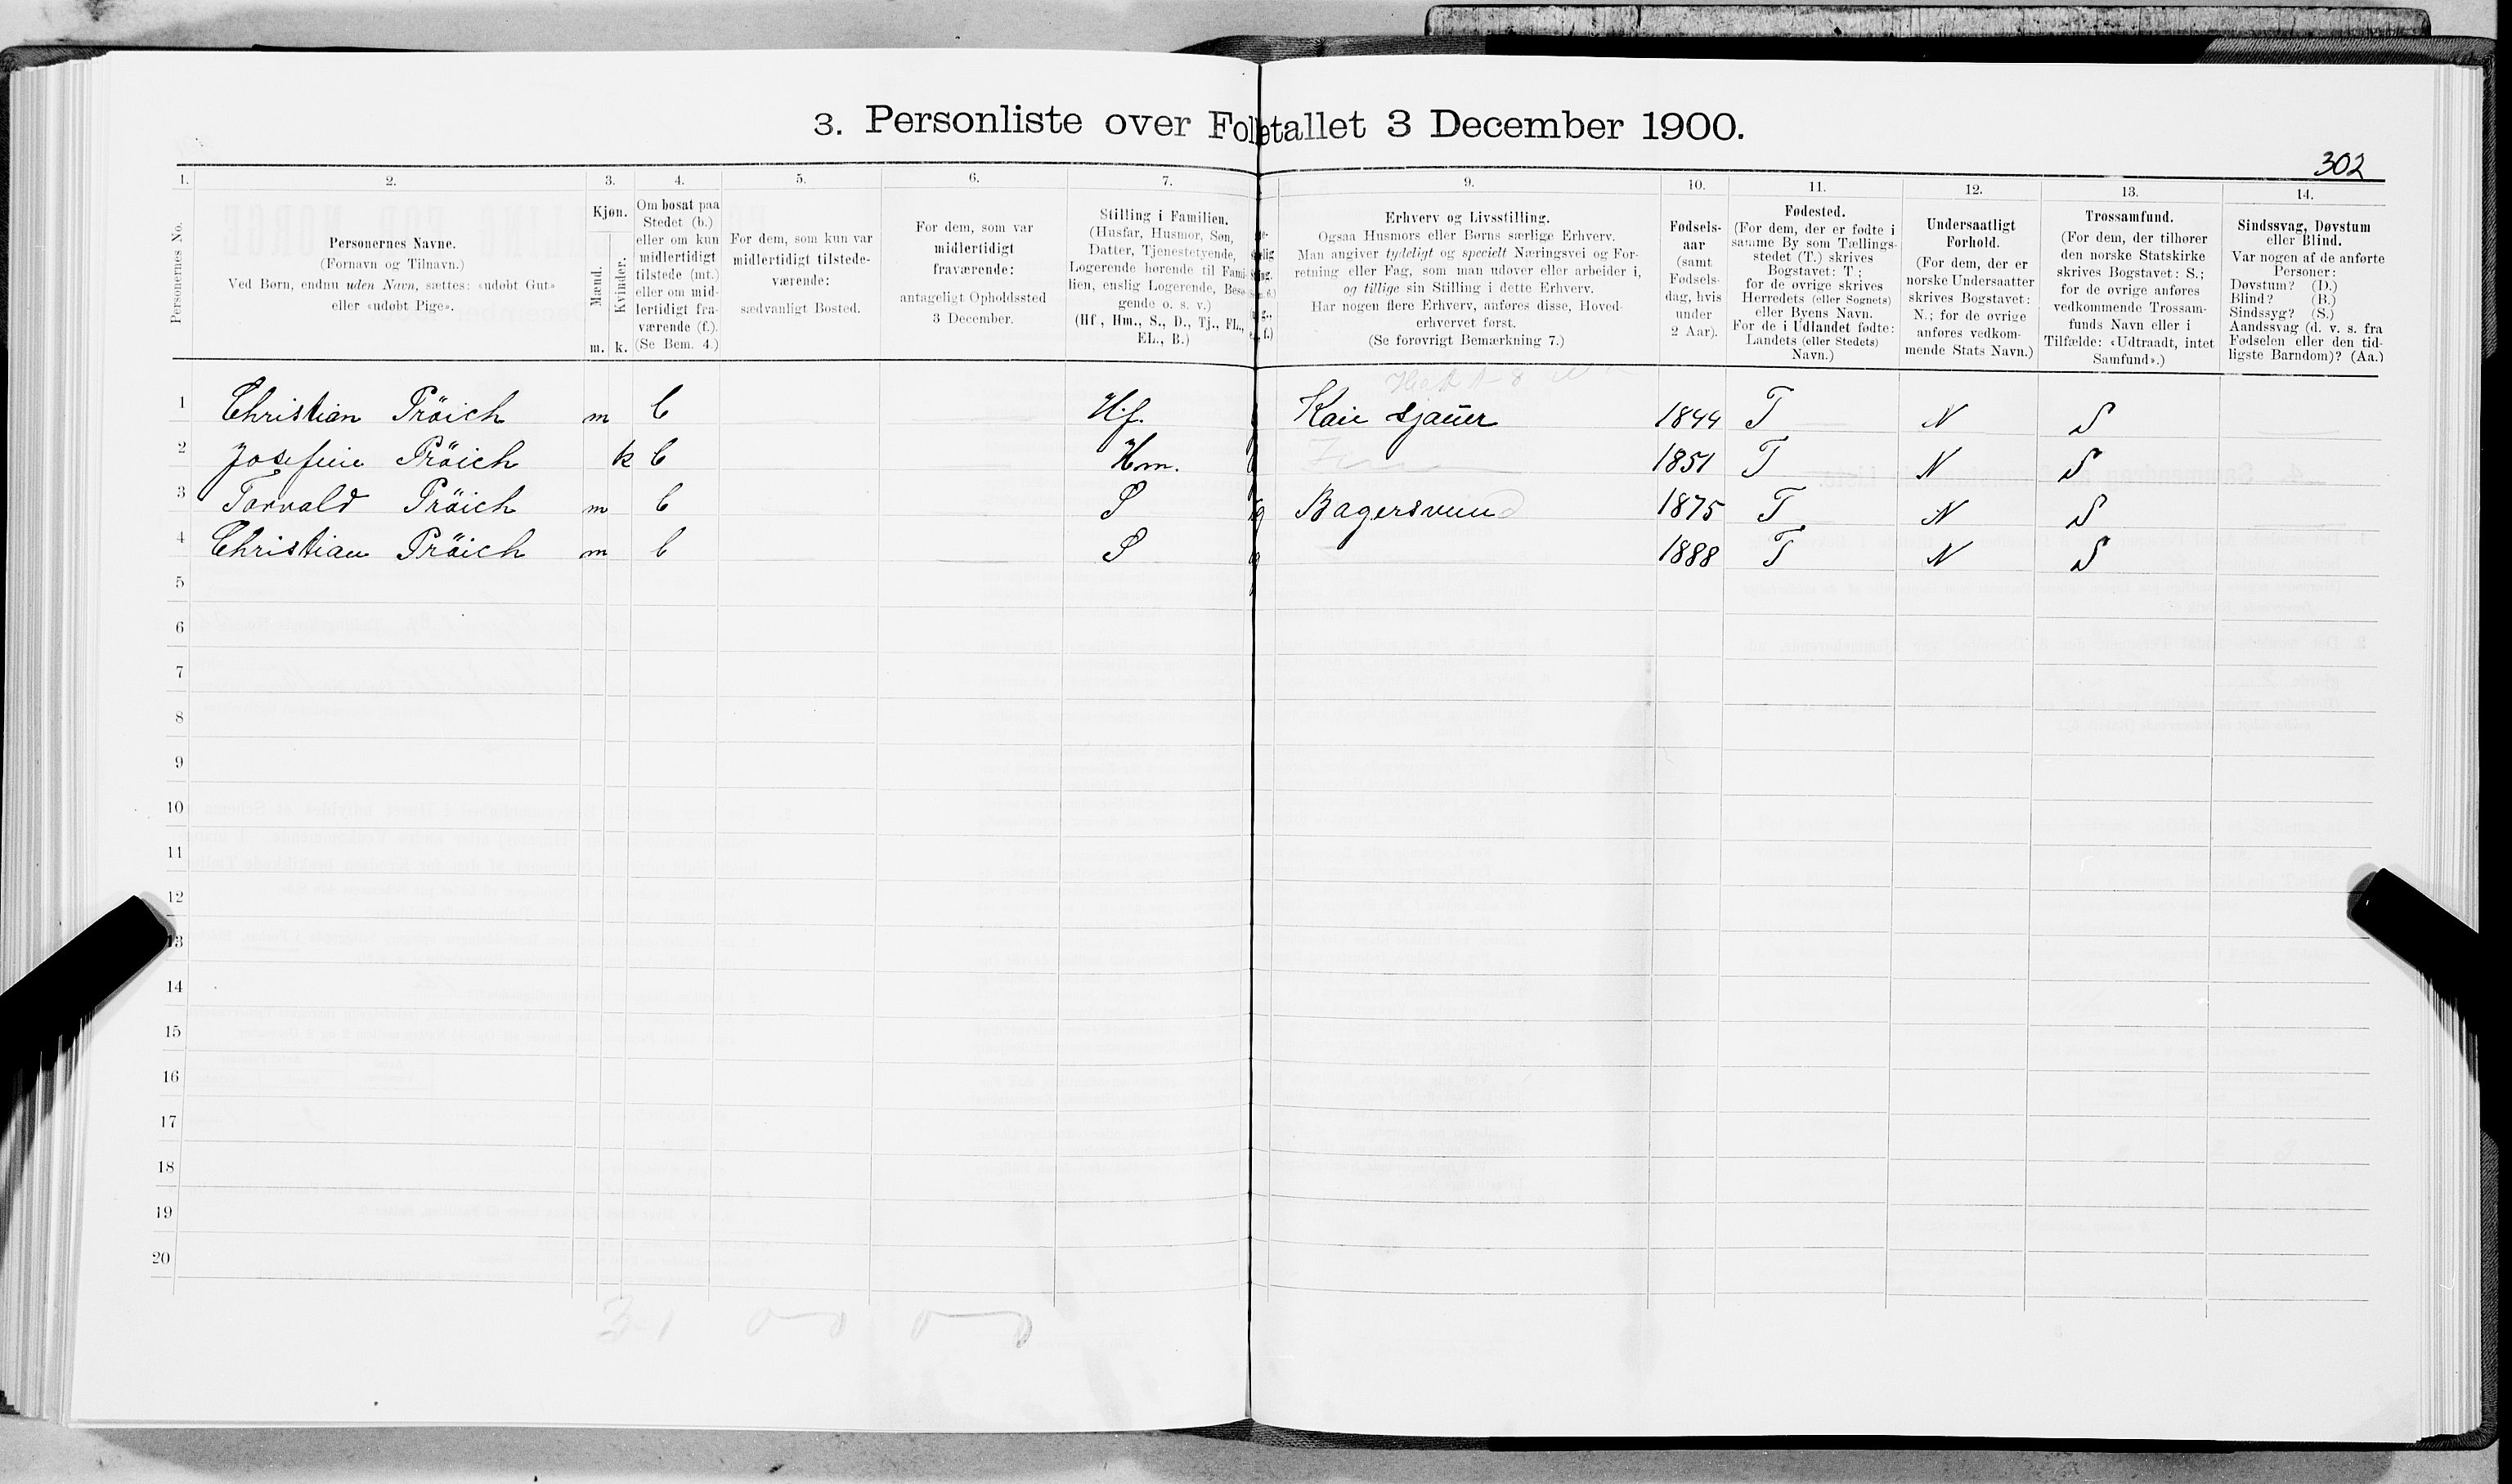 3. Personliste over Folketallet 3 December 1900.
302
1. 2. 3. 4. 5. 6. 7. 9. 10. 11. 12. 13. 14.
Personernes No.
Personernes Navne.
(Fornavn og Tilnavn.)
Ved Børn, endnu uden Navn, sættes: «udøbt Gut»
eller «udøbt Pige».
Kjøn.
Mænd.
Kvinder.
m. k.
Om bosat paa
Stedet (b.)
eller om kun
midlertidigt
tilstede (mt.)
eller om mid-
lertidigt fra-
værende (f.).
(Se Bem. 4.)
For dem, som kun var
midlertidigt tilstede-
værende:
sædvanligt Bosted.
For dem, som var
midlertidigt
fraværende:
antageligt Opholdssted
3 December.
Stilling i Familien.
(Husfar, Husmor, Søn,
Datter, Tjenestetyende,
Logerende hørende til Fami-
lien, enslig Logerende, Besø-
gende o. s. v.)
(Hf., Hm., S., D., Tj., FL.,
EL., B.)
Erhverv og Livsstilling.
Ogsaa Husmors eller Børns særlige Erhverv.
Man angiver tydeligt og specielt Næringsvei og For-
retning eller Fag, som man udøver eller arbeider i,
og tillige sin Stilling i dette Erhverv.
Har nogen flere Erhverv, anføres disse, Hoved-
erhvervet først.
(Se forøvrigt Bemærkning 7.)
Fødsels-
aar
(samt
Fødsels-
dag, hvis
under
2 Aar).
Fødested.
(For dem, der er fødte i
samme By som Tællings-
stedet (T.) skrives
Bogstavet: T;
for de øvrige skrives
Herredets (eller Sognets)
eller Byens Navn.
For de i Udlandet fødte:
Landets (eller Stedets)
Navn.)
Undersaatligt
Forhold.
(For dem, der er
norske Undersaatter
skrives Bogstavet:
N.; for de øvrige
anføres vedkom-
mende Stats Navn.)
Trossamfund.
(For dem, der tilhører
den norske Statskirke
skrives Bogstavet: S.;
for de øvrige anføres
vedkommende Trossam-
funds Navn eller i
Tilfælde: «Udtraadt, intet
Samfund».)
Sindssvag, Døvstum
eller Blind.
Var nogen af de anførte
Personer:
Døvstum? (D.)
Blind? (B.)
Sindssyg? (S.)
Aandssvag (d. v. s. fra
Fødselen eller den tid-
ligste Barndom)? (Aa.)
1 Christian Pröich m b Hf. Kaie Sjauer 1844 T N S
2 Josefine Pröich k b Hm. 1851 T N S
3 Torvald Pröich m b S g Bagersvend 1875 T N S
4 Christian Pröich m b S 1888 T N S
5
6
7
8
9
10
11
12
13
14
15
16
17
18
19
20
3-1 0-0 0-0